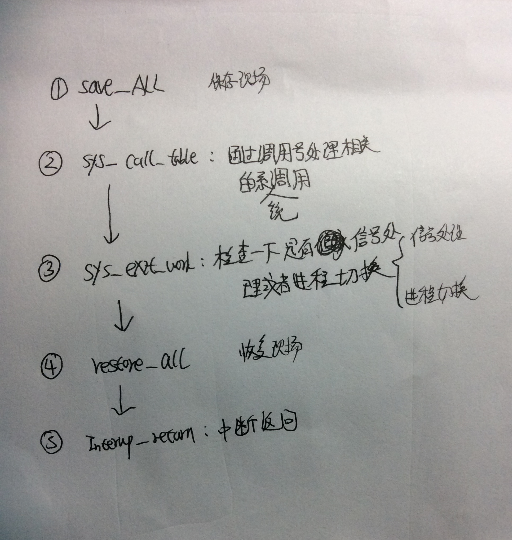 ① save_ALL 保存现场
② sys_call_table : 通过调用号处理相关
的系统调用
③ sys_exit_work : 检查一下是否有信号处
理或者进程切换
信号处理
进程切换
④ restore_all 恢复现场
⑤ Interrup_return : 中断返回